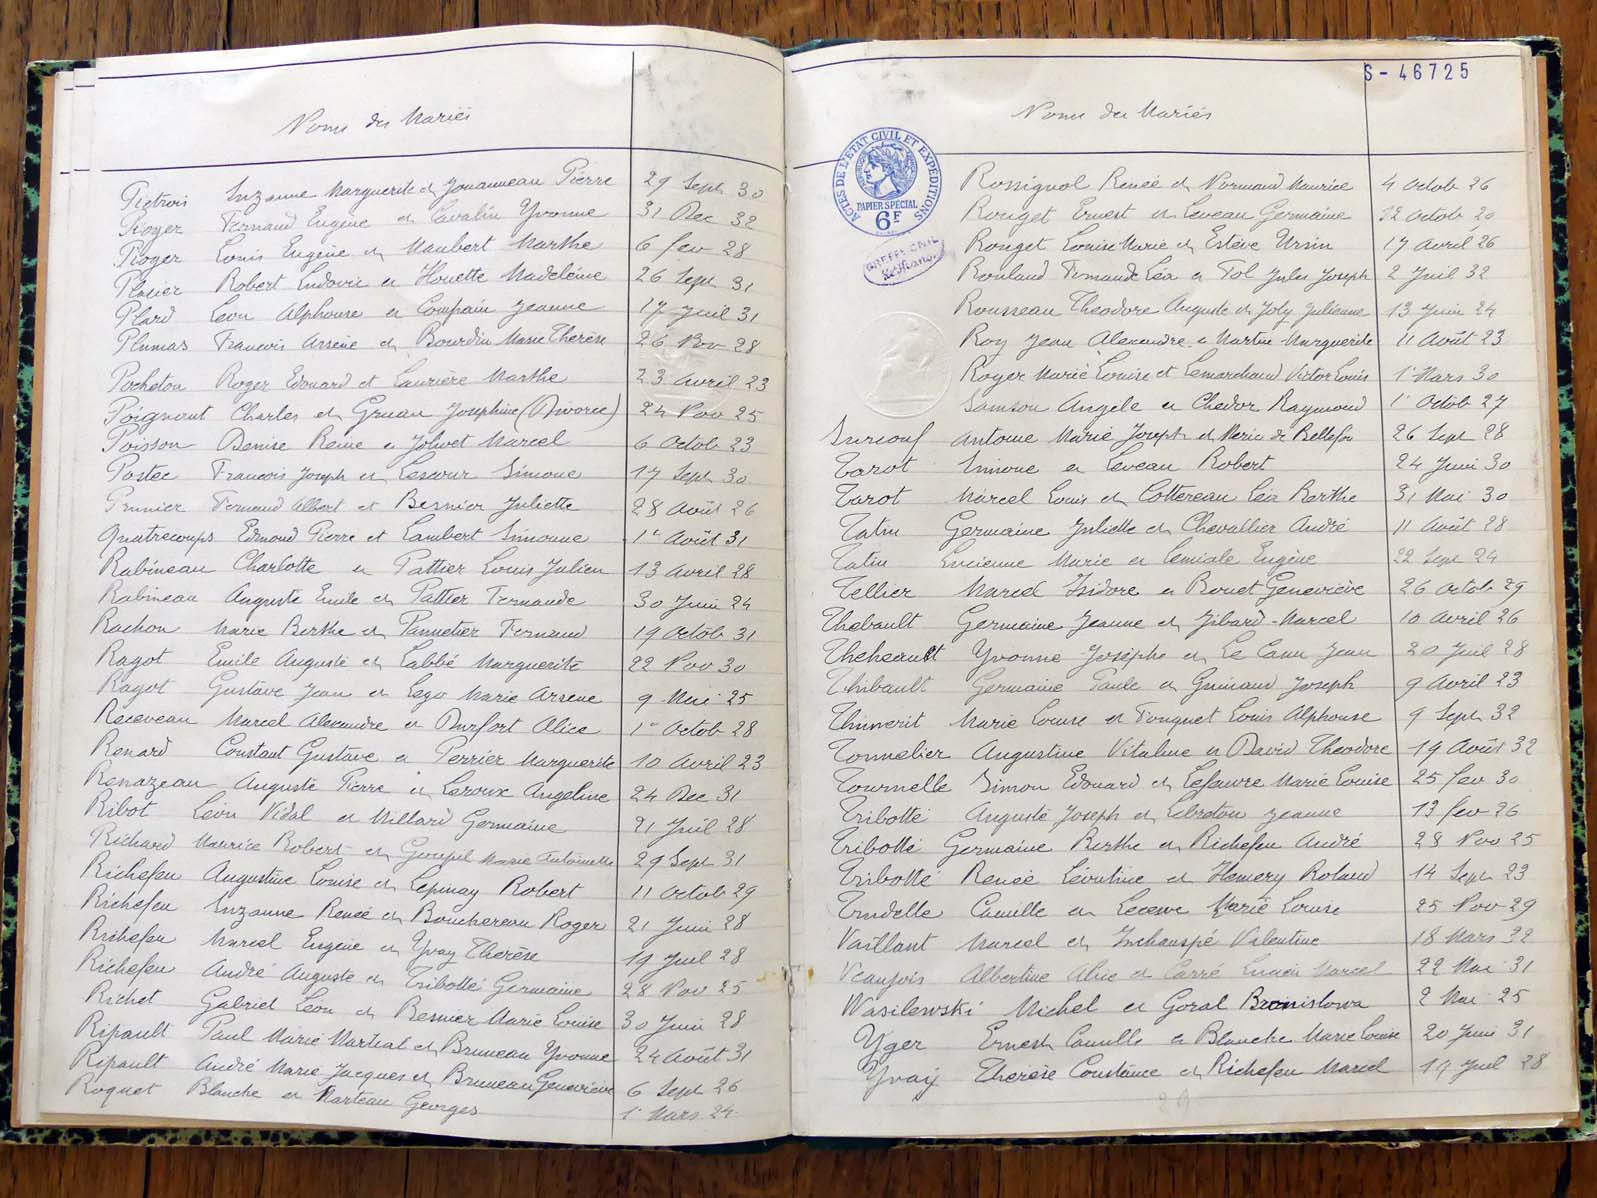 Noms des Mariés
Pietrois Suzanne Marguerite et Jouanneau Pierre 29 Sept 30
Pioger Fernand Eugène et Cavalin Yvonne 31 Dec 32
Pioger Louis Eugène et Maubert Marthe 6 fev 28
Plasier Robert Ludovic et Houette Madeleine 26 Sept 31
Plard Leon Alphonse et Compain Jeanne 17 Juil 31
Plumas Francois Arsene et Bourdin Marie Therèse 26 Nov 28
Pocheton Roger Edouard et Laurière Marthe 23 Avril 23
Poignant Charles et Gruau Josephine (Divorcé) 24 Nov 25
Poisson Denise Reine et Jolivet Marcel 6 Octob 23
Postec Francois Joseph et Lesueur Simone 17 Sept 30
Prunier Fernand Albert et Besnier Juliette 28 Août 26
Quatrecoups Edmond Pierre et Lambert Simonne 1er Août 31
Rabineau Charlotte et Pattier Louis Julien 13 Avril 28
Rabineau Auguste Emile et Pattier Fernande 30 Juin 24
Rachon Marie Berthe et Pannetier Fernand 19 Octob 31
Ragot Emile Auguste et Labbé Marguerite 22 Nov 30
Ragot Gustave Jean et Lego Marie Arsene 9 Mai 25
Receveau Marcel Alexandre et Durfort Alice 1er Octob 28
Renard Constant Gustave et Perrier Marguerite 10 Avril 23
Renazeau Auguste Pierre et Leroux Angeline 24 Dec 31
Ribot Léon Vidal et Millard Germaine 21 Juil 28
Richard Maurice Robert et Goupil Marie Antoinette 29 Sept 31
Richefeu Augustine Louise et Lepinay Robert 11 Octob 29
Richefeu Suzanne Renée et Bouchereau Roger 21 Juin 28
Richefeu Marcel Eugène et Yvay Therèse 19 Juil 28
Richefeu André Auguste et Tribotté Germaine 28 Nov 25
Richet Gabriel Léon et Besnier Marie Louise 30 Juin 28
Ripault Paul Marie Martial et Bruneau Yvonne 24 Août 31
Ripault André Marie Jacques et Bruneau Genevieve 6 Sept 26
Roquet Blanche et Marteau Georges 1er Mars 24
S-46725
Noms des Mariés
ACTES DE L'ÉTAT CIVIL ET EXPÉDITIONS
PAPIER SPÉCIAL
6F
Rossignol Renée et Normand Maurice 4 Octob 26
Rouget Ernest et Leveau Germaine 12 Octob 20
Rouget Louise Marie et Estève Ursin 17 Avril 26
Rouland Fernande Léa et Tol Jules Joseph 2 Juil 32
Rousseau Theodore Auguste et Joly Julienne 13 Juin 24
Roy Jean Alexandre et Martin Marguerite 11 Août 23
Royer Marie Louise et Lemarchand Victor Louis 1er Mars 30
Samson Angele et Chedor Raymond 1er Octob 27
Surcouf Antoine Marie Joseph et Meric de Bellefon 26 Sept 28
Tarot Simone et Leveau Robert 24 Juin 30
Tarot Marcel Louis et Cottereau Léa Berthe 31 Mai 30
Tatin Germaine Juliette et Chevallier André 11 Août 28
Tatin Lucienne Marie et Lemiale Eugène 22 Sept 24
Tellier Marcel Isidore et Bouet Geneviève 26 Octob 29
Thebault Germaine Jeanne et Jibard Marcel 10 Avril 26
Theheault Yvonne Josèphe et Le Cann Jean 20 Juil 28
Thibault Germaine Paule et Guinaud Joseph 9 Avril 23
Thimerit Marie Louise et Fouquet Louis Alphonse 9 Sept 32
Tonnelier Augustine Vitaline et David Theodore 19 Août 32
Tournelle Simon Edouard et Lefauvre Marie Louise 25 fev 30
Tribotté Auguste Joseph et Lebreton Jeanne 13 fev 26
Tribotté Germaine Berthe et Richefeu André 28 Nov 25
Tribotté Renée Léontine et Hemery Roland 14 Sept 23
Trudelle Camille et Leceuve Marie Louise 25 Nov 29
Vaillant Marcel et Inchauspé Valentine 18 Mars 32
Veaufois Albertine Alice et Carré Lucien Marcel 22 Mai 31
Wasilewski Michel et Goral Bronislowa 2 Mai 25
Yger Ernest Camille et Blanche Marie Louise 20 Juin 31
Yvay Therèse Constance et Richefeu Marcel 19 Juil 28